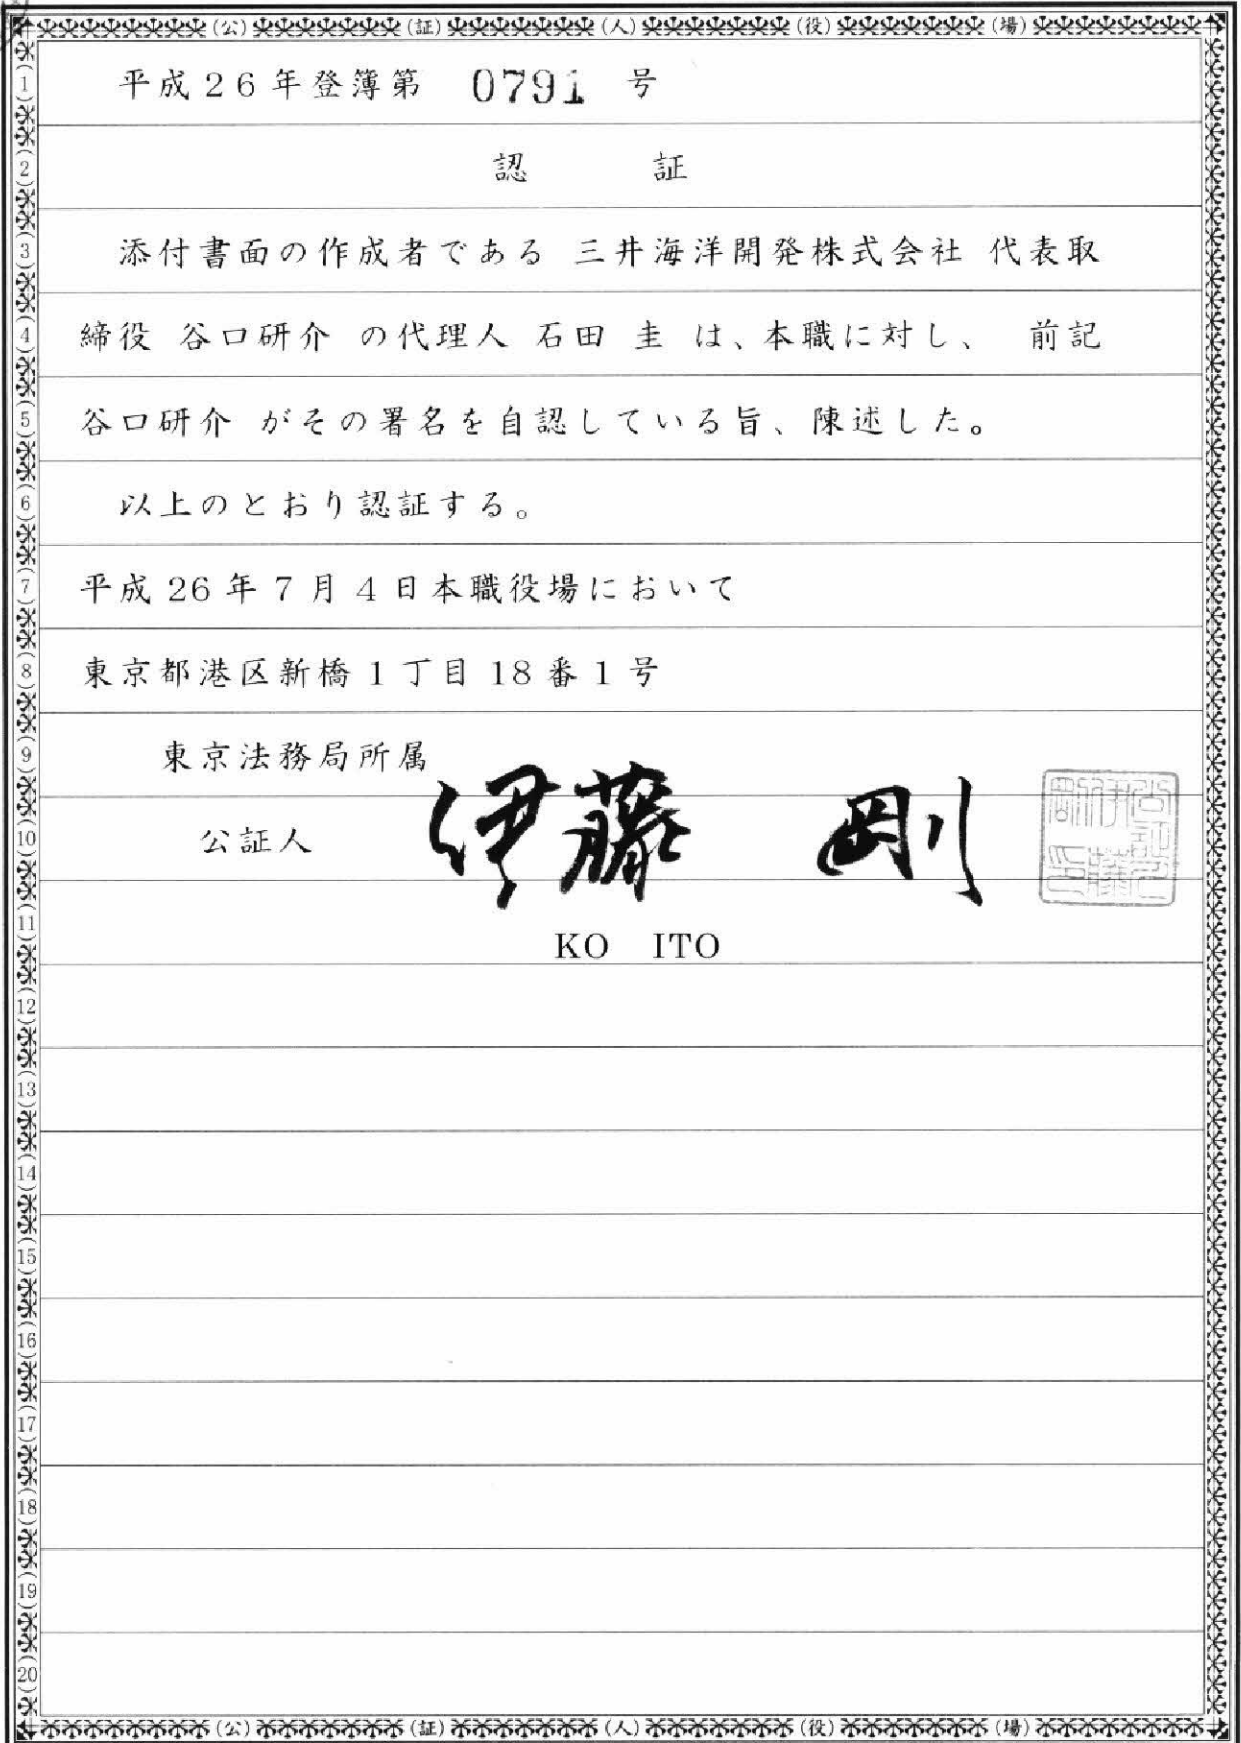 (公) (証) (人) (役) (場)
(1) 平成26年登簿第 0791 号
(2) 認 証
(3) 添付書面の作成者である 三井海洋開発株式会社 代表取
(4) 締役 谷口研介 の代理人 石田 圭 は、本職に対し、 前記
(5) 谷口研介 がその署名を自認している旨、陳述した。
(6) 以上のとおり認証する。
(7) 平成 26 年 7 月 4 日本職役場において
(8) 東京都港区新橋 1 丁目 18 番 1 号
(9) 東京法務局所属
(10) 公証人 伊藤 剛
(11) KO ITO
(12)
(13)
(14)
(15)
(16)
(17)
(18)
(19)
(20)
(公) (証) (人) (役) (場)